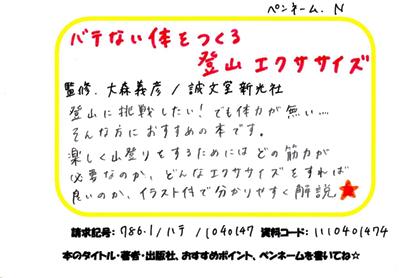 ペンネーム. N
バテない体をつくる
登山エクササイズ
監修. 大森義彦 / 誠文堂新光社
登山に挑戦したい！でも体力が無い…
そんな方におすすめの本です。
楽しく山登りをするためにはどの筋力が
必要なのか、どんなエクササイズをすれば
良いのか、イラスト付で分かりやすく解説
請求記号: 786.1 / ハテ / 1040147 資料コード: 1110401474
本のタイトル・著者・出版社、おすすめポイント、ペンネームを書いてね☆